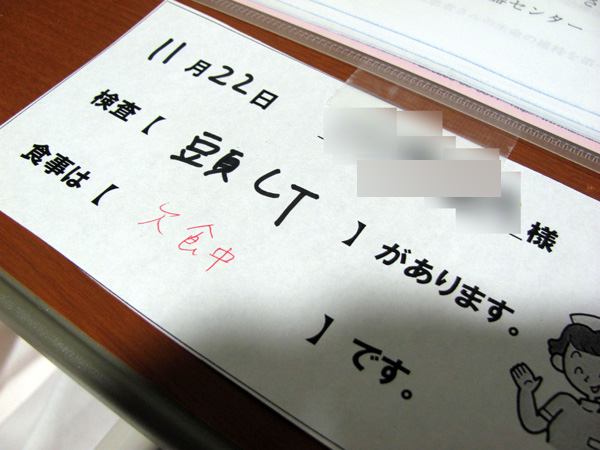 診センター
11月22日
様
検査【 頭CT 】があります。
食事は【 欠食中 】です。